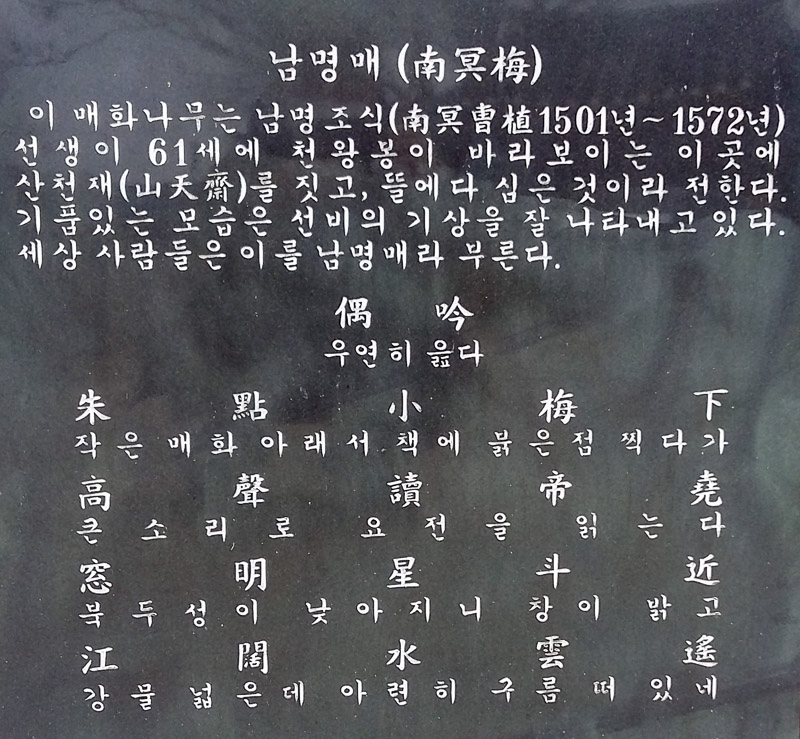 남명매 (南冥梅)
이 매화나무는 남명 조식(南冥曺植1501년~1572년)
선생이 61세에 천왕봉이 바라보이는 이곳에
산천재(山天齋)를 짓고, 뜰에다 심은 것이라 전한다.
기품있는 모습은 선비의 기상을 잘 나타내고 있다.
세상 사람들은 이를 남명매라 부른다.
偶吟
우연히 읊다
朱點小梅下
작은 매화 아래서 책에 붉은점 찍다가
高聲讀帝堯
큰 소리로 요전을 읽는다
窓明星斗近
북두성이 낮아지니 창이 밝고
江闊水雲遙
강물 넓은데 아련히 구름 떠 있네